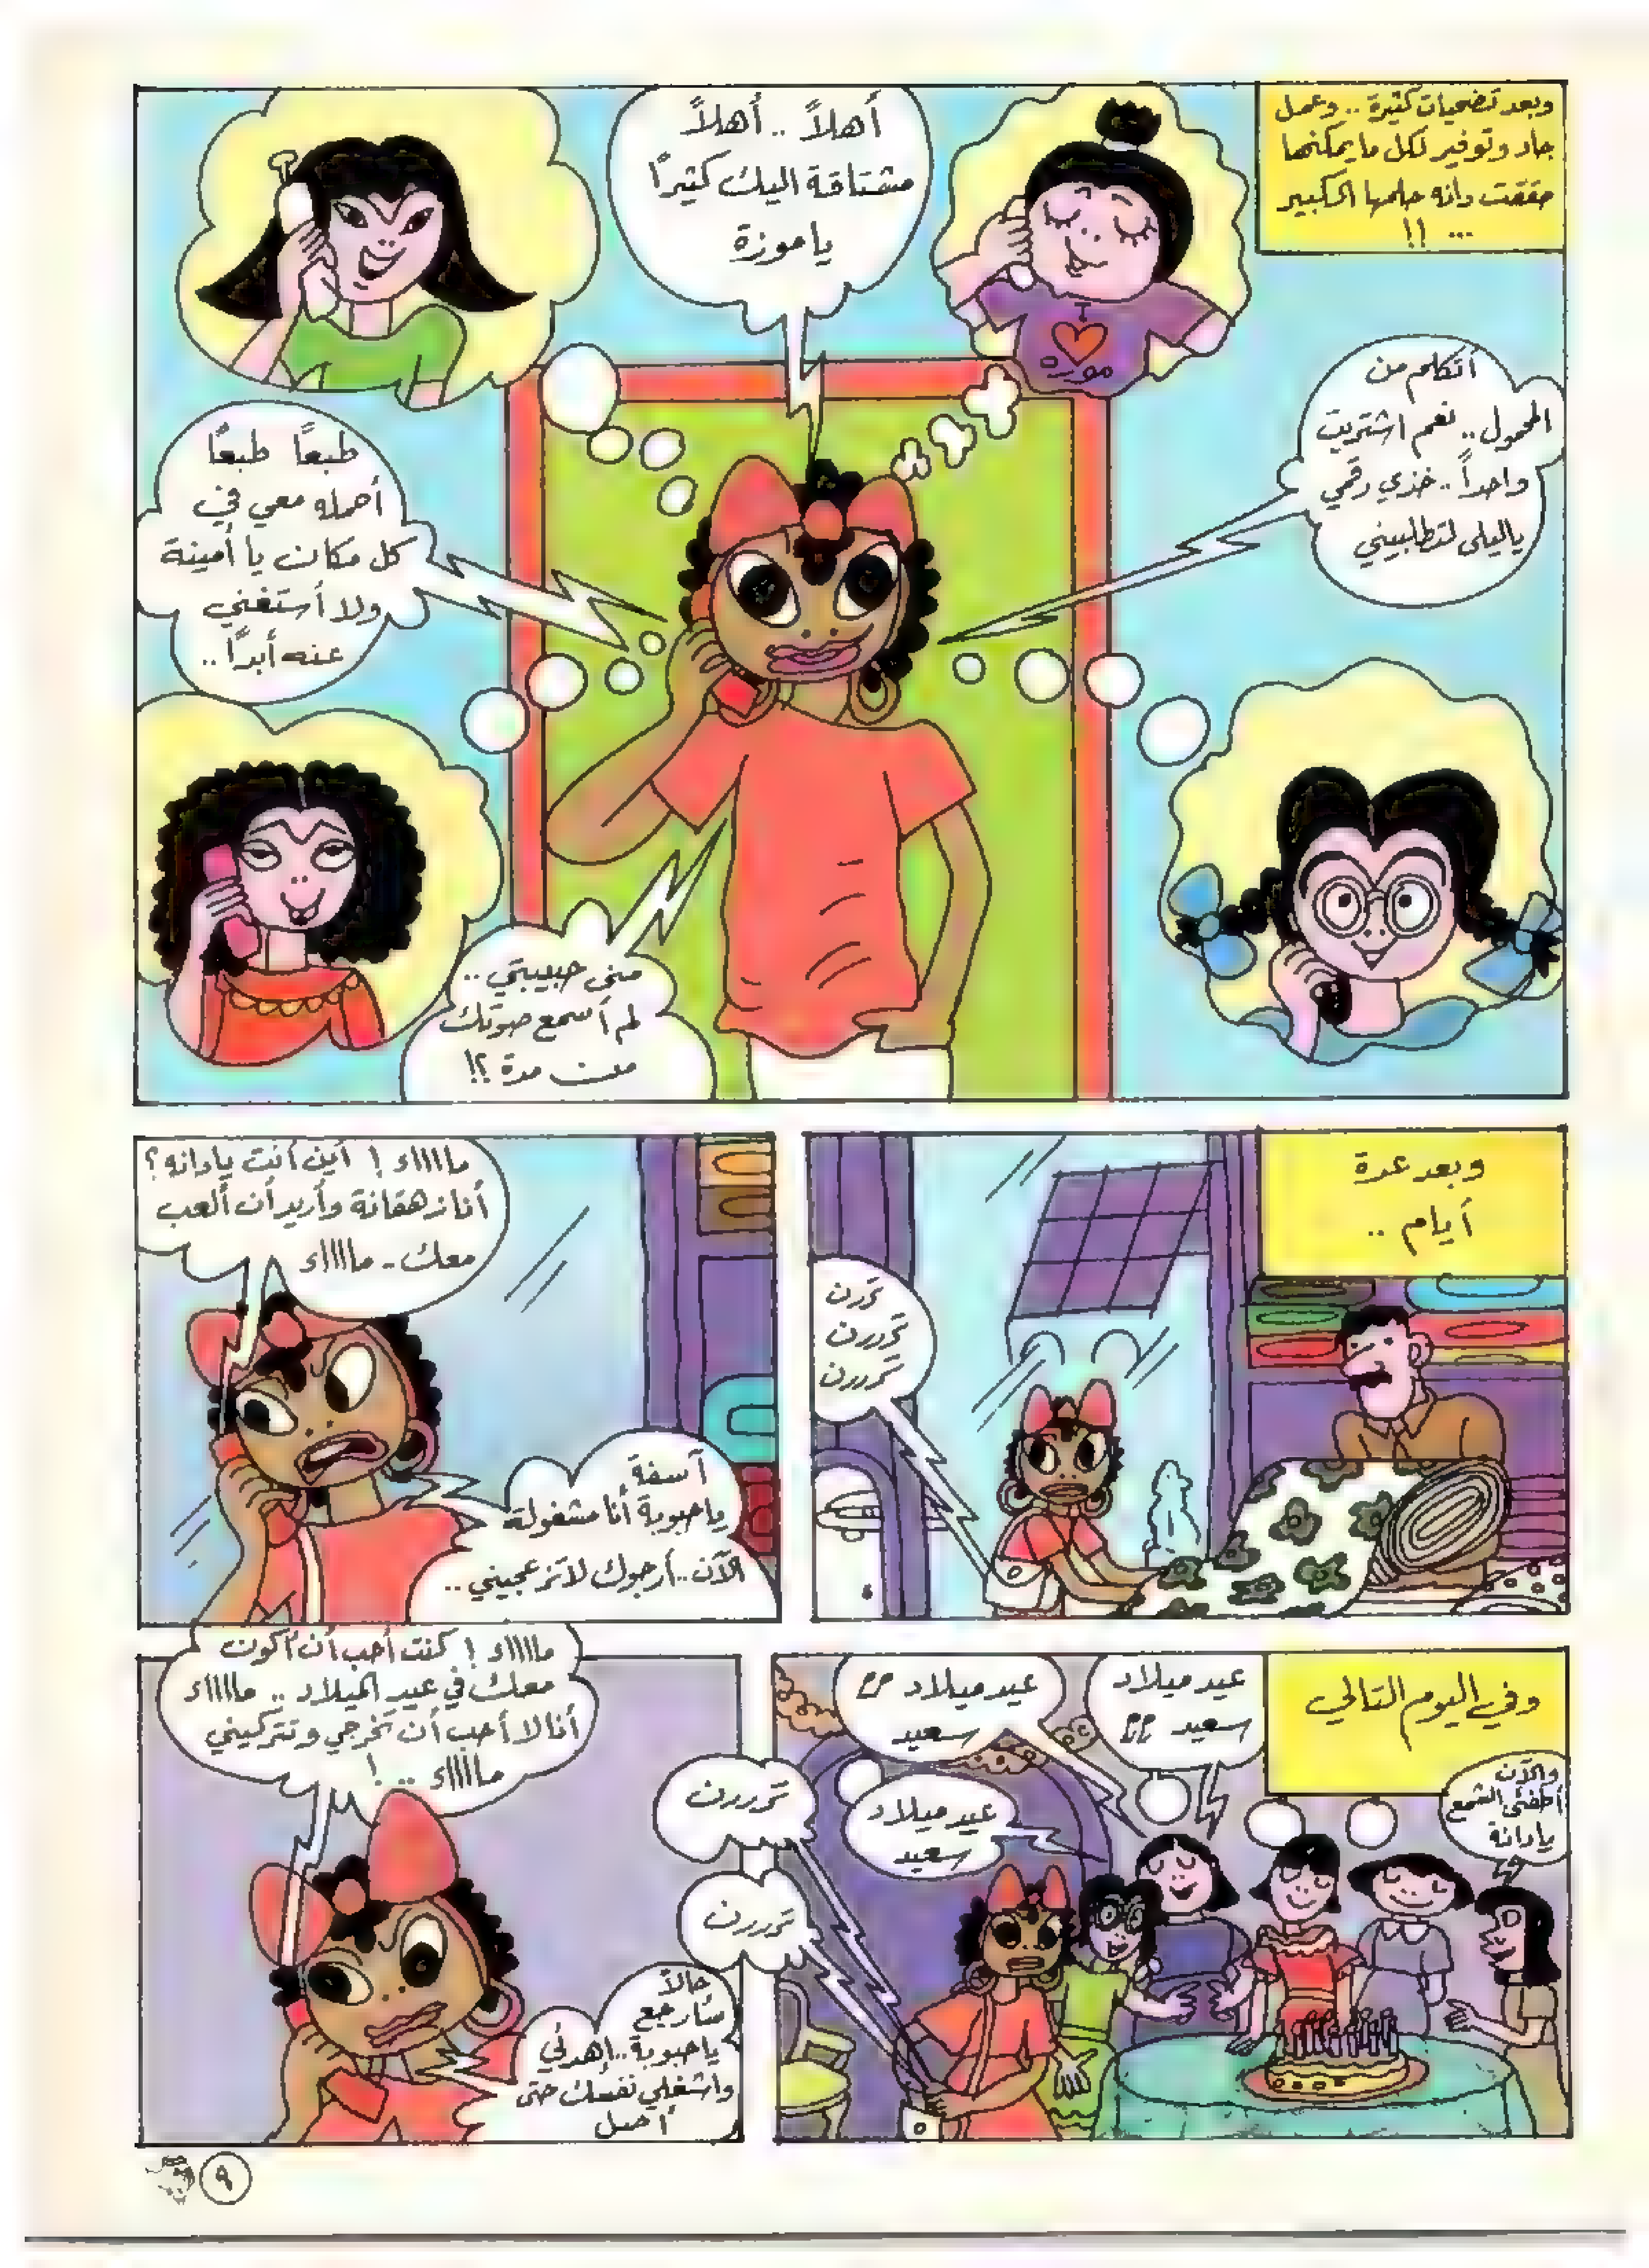 وبعد تضحيات كثيرة .. وعمل
جاد وتوفير لكل ما يمكنها
حققت دانه حلمها الكبير
... !!
أهلاً .. أهلاً
مشتاقة اليك كثيرًا
يا موزة
موزه
أتكلم من
المحمول .. نعم اشتريت
واحداً .. خذي رقمي
ياليلى لتطلبيني
طبعًا طبعًا
أحمله معي في
كل مكان يا أمينة
ولا أستغني
عنه أبدًا ..
منى حبيبتي ..
لم أسمع صوتك
من مدة ؟!
وبعد عدة
أيام ..
تررن
تررررن
تررررن
ماااااء ! أين أنت يادانه ؟
أنا زهقانة وأريد أن ألعب
معك - ماااااء
آسفة
ياحبوبة أنا مشغولة
الآن .. أرجوك لا تزعجيني ..
وفي اليوم التالي
عيد ميلاد
سعيد
عيد ميلاد
سعيد
عيد ميلاد
سعيد
والآن
أطفئي الشمع
يادانة
تررررن
تررررن
ماااااء ! كنت أحب أن أكون
معك في عيد الميلاد .. ماااااء
أنا لا أحب أن تخرجي وتتركيني
ماااااء .. !
حالاً
سأرجع
ياحبوبة .. إهدئي
واشغلي نفسك حتى
أصل
٩